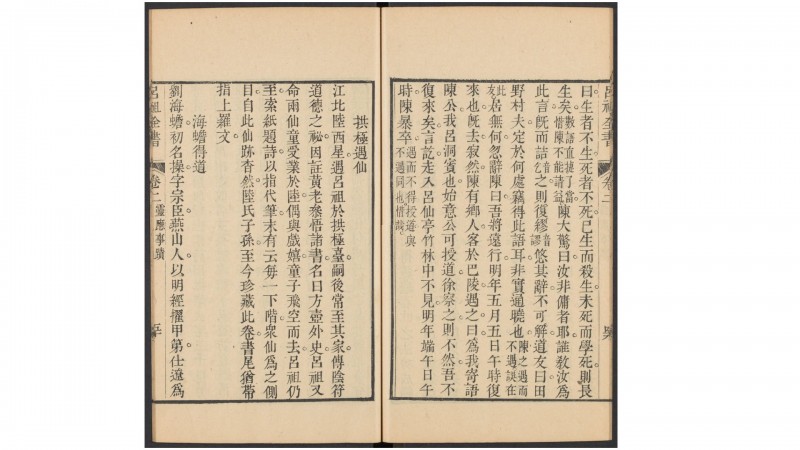 曰生者不生死者不死已生而殺生未死而學死則長
生矣數語直捷了當惜陳不能請益陳大驚曰汝非傭者耶誰敎汝爲
此言旣而詰音乞之則復繆音謬悠其辭不可解道友曰田
野村夫定於何處竊得此語耳非實通曉也陳之遇而不遇誤在此友
居無何忽辭陳曰吾將遠行明年五月五日午時復
來也旣去寂然陳有鄉人客於巴陵遇之曰爲我寄語
陳公我呂洞賓也始意公可授道徐察之則不然吾不
復來矣言訖走入呂仙亭竹林中不見明年端午日午
時陳暴卒遇而不得授道與不遇同也惜哉
呂祖全書
卷二
拱極遇仙
江北陸西星遇呂祖於拱極臺嗣後常至其家傳陰符
道德之祕因註黃老叅悟諸書名曰方壺外史呂祖又
命兩仙童受業於陸偶與戲嬉童子飛空而去呂祖仍
至索紙題詩以指代筆末有云每一下階衆仙爲之側
目自此仙跡杳然陸氏子孫至今珍藏此卷書尾猶帶
指上羅文
海蟾得道
劉海蟾初名操字宗臣燕山人以明經擢甲第仕遼爲
呂祖全書
卷二 靈應事蹟